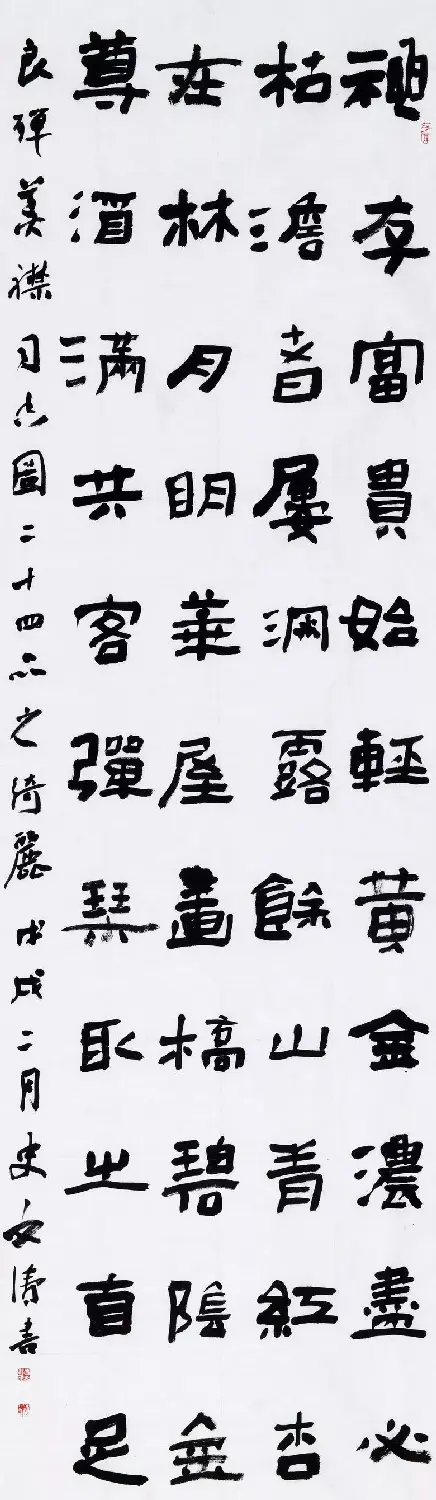 神存富貴始輕黃金濃盡必
枯澹者屢露餘山青紅杏
在林月明華屋畫橋碧陰金
尊酒滿共客彈琴取之自足
良殫美襟司空圖二十四品之綺麗戊戌二月史濤書